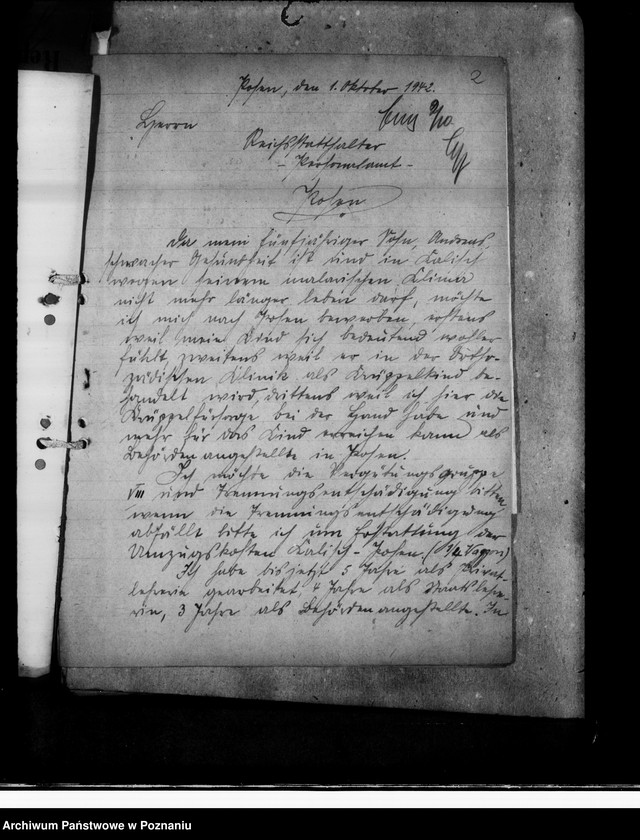 2
Posen, den 1. Oktober 1942.
Herrn
Reichsstatthalter
- Personalamt -
Posen
Da mein fünfjähriger Sohn, Andreas,
schwacher Gesundheit ist und in Kalisch
wegen seinem malarischen Klima
nicht mehr länger leben darf, möchte
ich mich nach Posen bewerben, erstens
weil mein Kind sich bedeutend wohler
fühlt, zweitens weil er in der Ortho-
pädischen Klinik als Krüppelkind be-
handelt wird, drittens weil ich hier die
Krüppelfürsorge bei der Hand habe und
mehr für das Kind erreichen kann als
Behördenangestellte in Posen.
Ich möchte die Vergütungsgruppe
VIII und Trennungsentschädigung bitten,
wenn die Trennungsentschädigung
abfällt bitte ich um Erstattung der
Umzugskosten Kalisch - Posen.
Ich habe bis jetzt 5 Jahre als Privat-
lehrerin gearbeitet, 4 Jahre als Staatslehre-
rin, 3 Jahre als Behördenangestellte. In
Archiwum Państwowe w Poznaniu